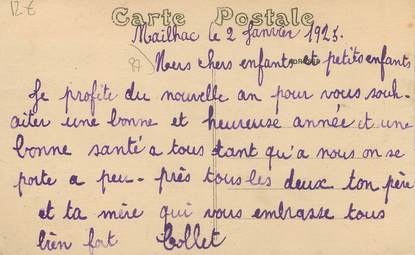 12 €
Carte Postale
Mailhac le 2 Janvier 1925.
87
Mers chers enfants et petits enfants
Je profite du nouvelle an pour vous souh-
aiter une bonne et heureuse année et une
bonne santé a tous tant qu'a nous on se
porte a peu-près tous les deux ton père
et ta mère qui vous embrasse tous
bien fort Collet